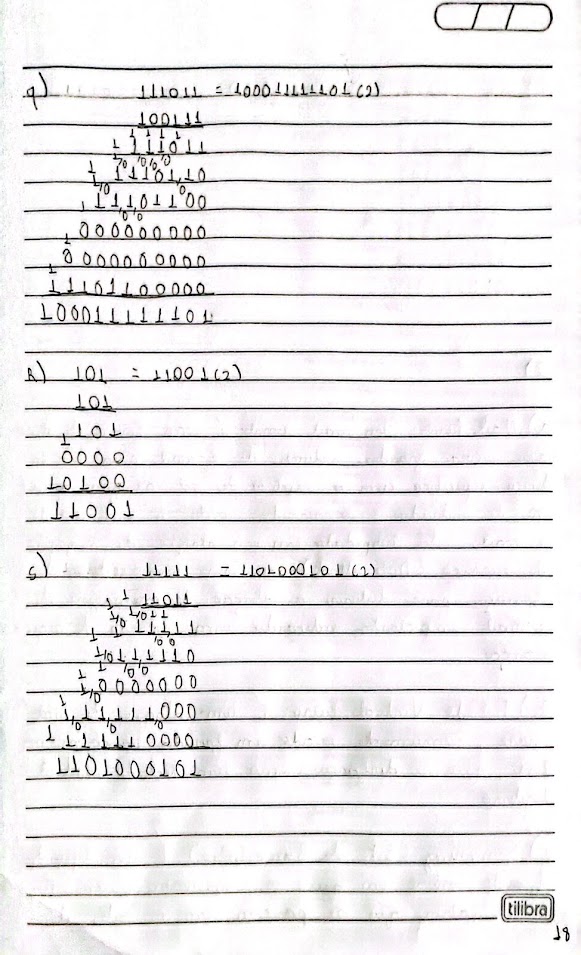 q) 111011 = 100011111101(2)
100111
111011
1110110
11101100
000000000
0000000000
11101100000
100011111101
R) 101 = 11001(2)
101
101
0000
10100
11001
S) 11111 = 1101000101(2)
11011
11111
111110
0000000
11111000
111110000
1101000101
tilibra
18